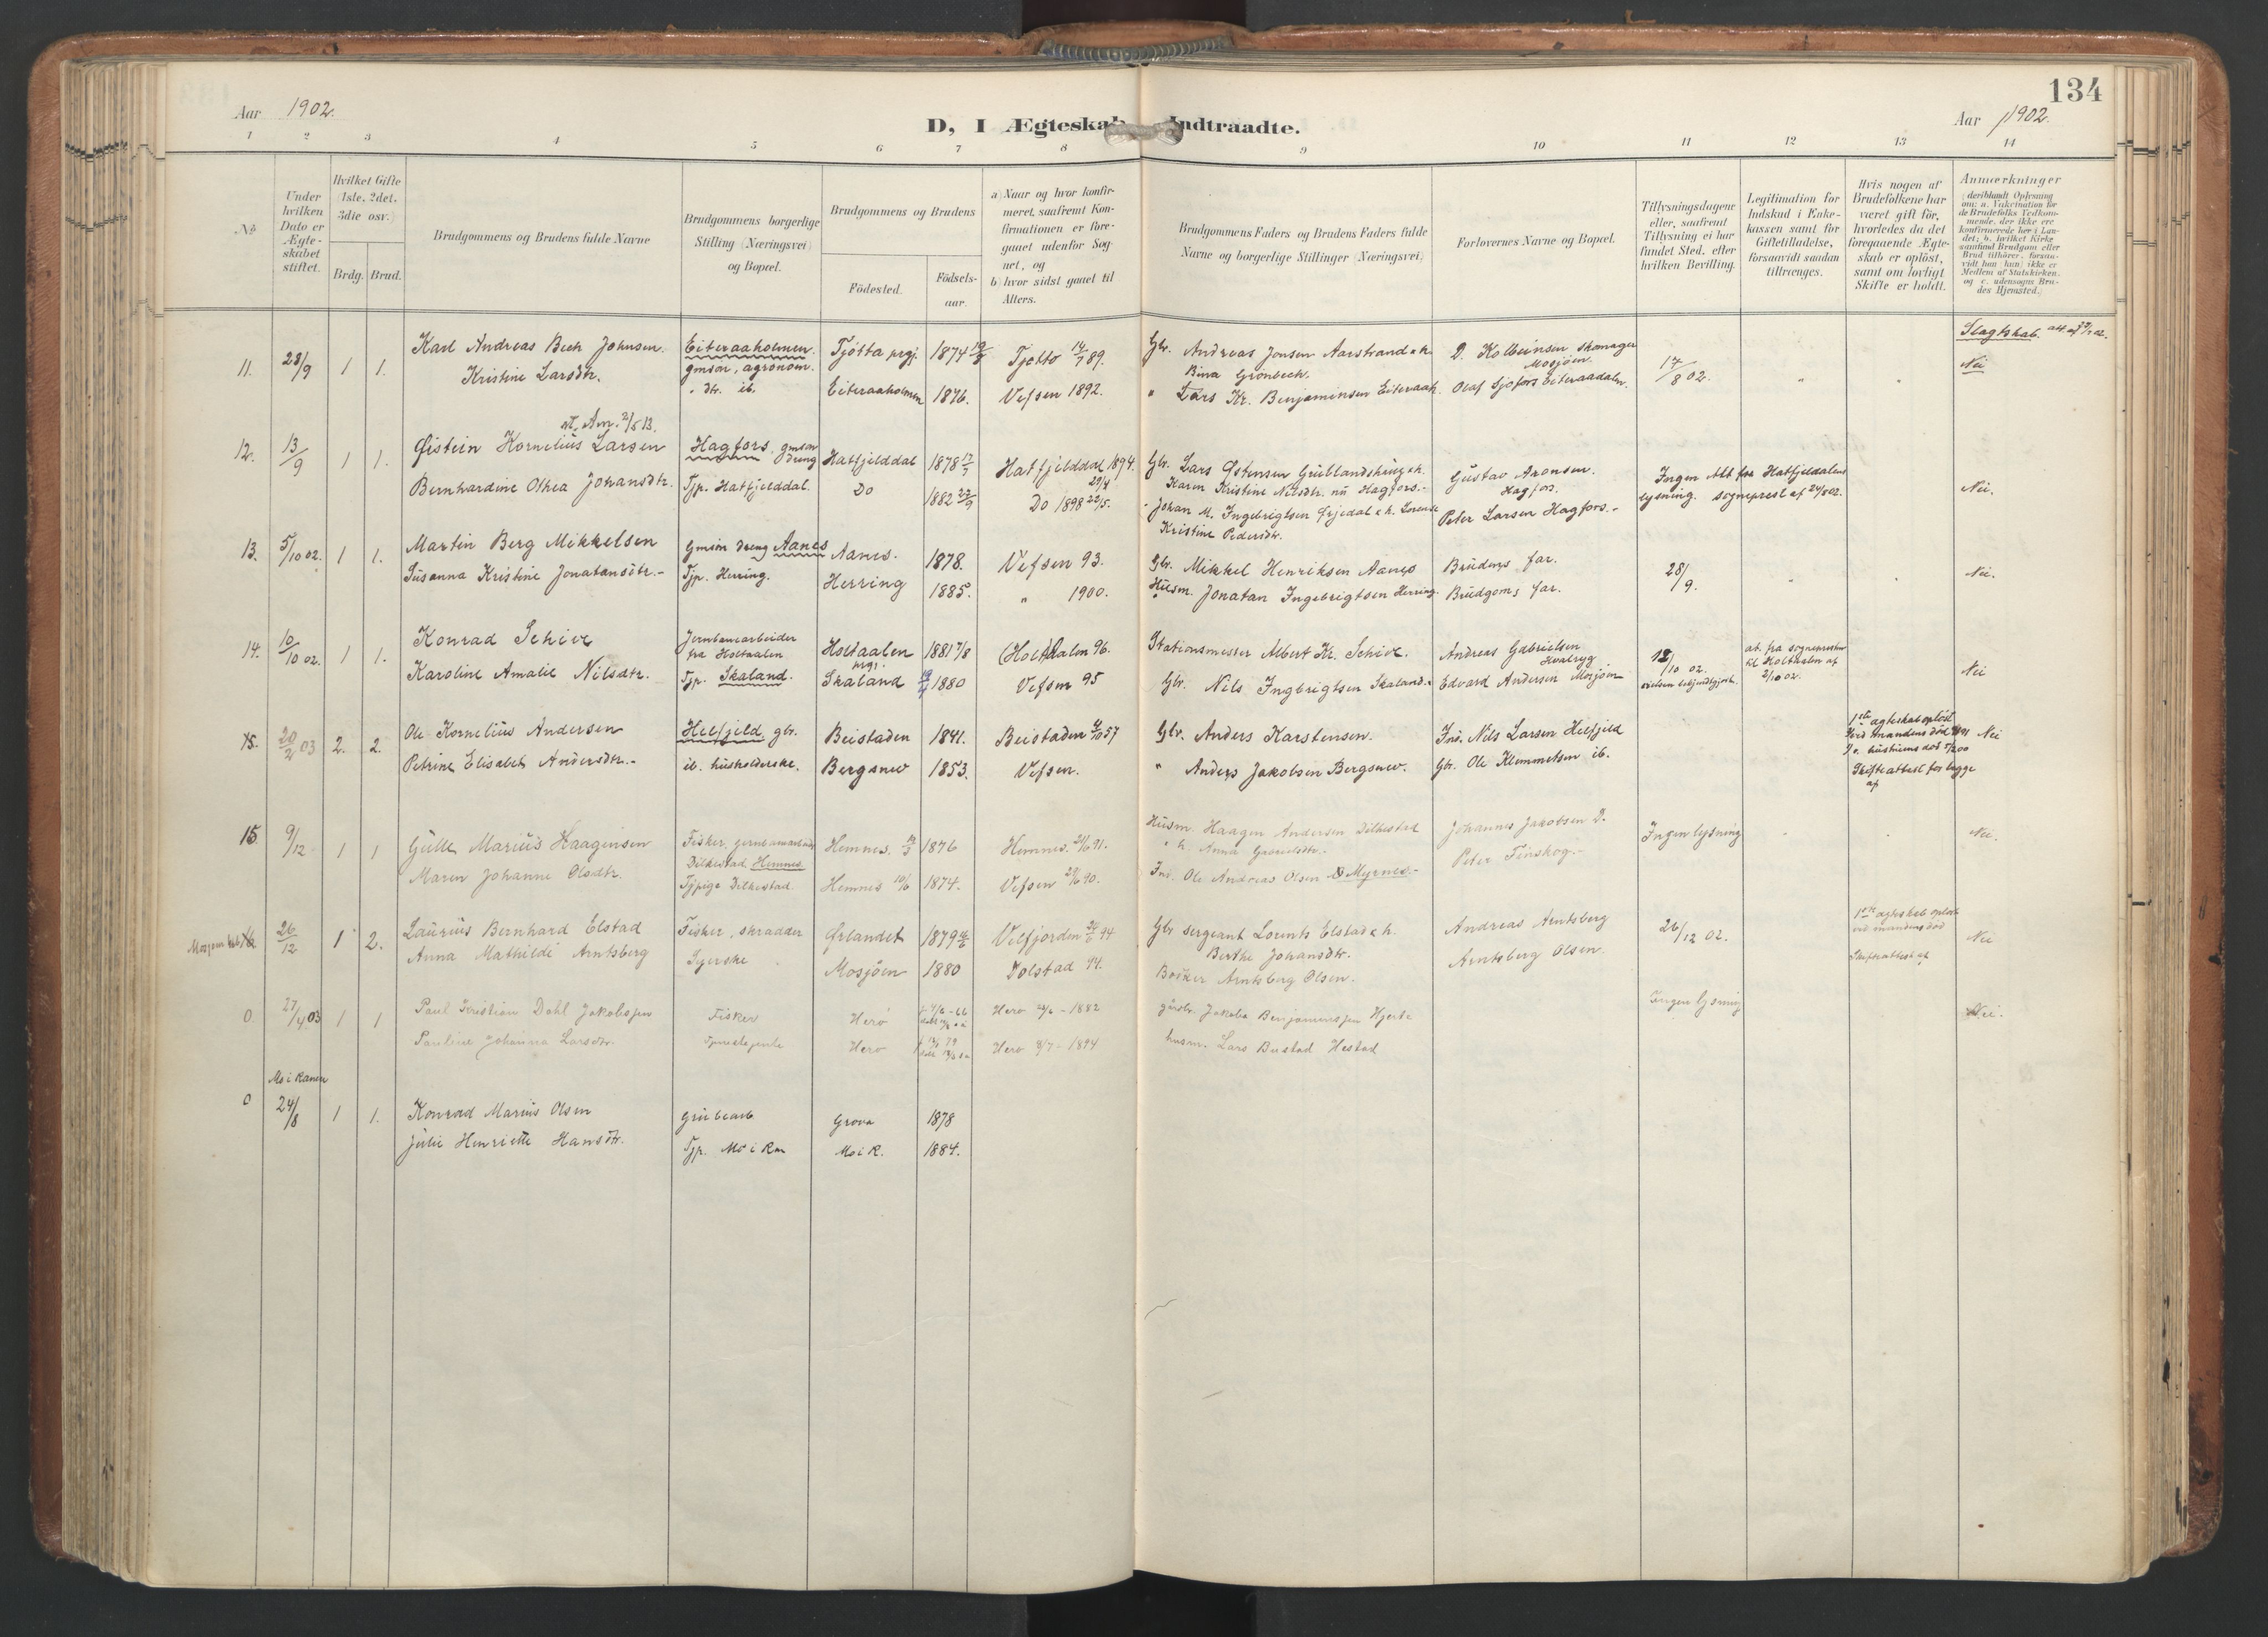 134
Aar 1902.
D, I Ægteskab Indtraadte.
Aar 1902.
1 2 3 4 5 6 7 8 9 10 11 12 13 14
No
Under hvilken Dato er Ægteskabet stiftet.
Hvilket Gifte (1ste, 2det, 3die osv.)
Brdg. Brud.
Brudgommens og Brudens fulde Navne
Brudgommens borgerlige Stilling (Næringsvei) og Bopæl.
Brudgommens og Brudens
Födested.
Födselsaar.
a) Naar og hvor konfirmeret, saafremt Konfirmationen er foregaaet udenfor Sognet, og
b) hvor sidst gaaet til Alters.
Brudgommens Faders og Brudens Faders fulde Navne og borgerlige Stillinger (Næringsvei)
Forlovernes Navne og Bopæl.
Tillysningsdagene eller, saafremt Tillysning ei har fundet Sted, efter hvilken Bevilling.
Legitimation for Indskud i Enkekassen samt for Giftetilladelse, forsaavidt saadan tiltrænges.
Hvis nogen af Brudefolkene har været gift för, hvorledes da det foregaaende Ægteskab er oplöst, samt om lovligt Skifte er holdt.
Anmærkninger (deriblandt Oplysning om: a. Vakcination for de Brudefolks Vedkommende, der ikke ere konfirmerede her i Landet; b. hvilket Kirkesamfund Brudgom eller Brud tilhörer, forsaavidt han (hun) ikke er Medlem af Statskirken, og c. udensogns Brudes Hjemsted.)
11. 28/9 1 1. Karl Andreas Bech Johnsen. Eiteraaholmen. gmsön, agronom. Tjötta prgj. 1874 Tjotto 14/7 89. Gbr. Andreas Jonsen Aarstrand & h. Bina Grönbech. D. Kolbeinsen skomager Mosjöen. 17/8 02. Slagtskab. Nei
Kristine Larsdtr. " dtr. ib. Eiteraaholmen 1876. Vefsen 1892. " Lars Kr. Benjaminsen Eiteraah. Olaf Sjofors Eiteraadalen.
12. 13/9 1 1. Øistein Kornelius Larsen Hagfors. gmsön dreng Hatfjelddal 1878 Hatfjelddal 1894. Gbr. Lars Östensen Grublandskrug & h. Karen Kristine Nilsdtr. nu Hagfors.- Gustav Aronsen. Hagfors. Ingen lysning. Att fra Hatfjeldalens sogneprest af 24/8 02. Nei.
Bernhardine Othea Johansdtr. Tjp. Hatfjelddal. Do 1882 22/9 Do 1898 22/5. Johan M. Ingebrigtsen & h. Lorense Kristine Pedersdtr. Peter Larsen Hagfors.-
13. 5/10 02. 1 1. Martin Berg Mikkelsen Gmsön dreng Aanes Aanes. 1878. Vefsen 93. Gbr. Mikkel Henriksen Aanes Brudens far. 28/9. Nei.
Susanna Kristine Jonatansdtr.- Tjp. Herring. Herring 1885. " 1900. Husm. Jonatan Ingebrigtsen Herring. Brudgoms far.
14. 10/10 02. 1 1. Konrad Schive Jernbanearbeider fra Holtaalen Holtaalen prgj. 1881 7/8 (Holt)aalen 96. Stationsmester Albert Kr. Schive. Andreas Gabrielsen Hvalryg 12/10 02. at. fra sognepresten til Holtaalen af 2/10 02. Nei
Karoline Amalie Nilsdtr. Tjp. Skaland. Skaland 1880 Vefsen 95 Gbr. Nils Ingbrigtsen Skaland. Edvard Andersen Mosjöen
15. 20/2 03 2. 2. Ole Kornelius Andersen Helfjeld gbr. Beistaden 1841. Beistaden 4/10 57 Gbr. Anders Karstensen. Ind. Nils Larsen Helfjeld 1ste ægteskab oplöst ved mandens död Nei
Petrine Elisabet Andersdtr.- ib. husholderske. Bergsnev 1853. Vefsen. " Anders Jakobsen Bergsnev. Gbr. Ole Klemmetsen ib. Skifteattest for begge af
15. 9/12 1 1 Gulle Marius Haagensen Fisker, jernbanearbeid Dilkestad Hemnes Hemnes. 1876 Hemnes. 91. Husm. Haagen Andersen Dilkestad & h. Anna Johannes Jakobsen D. Ingen lysning Nei.
Maren Johanne Olsdtr. Tjpige Dilkestad. Hemnes 10/6 1874. Vefsen 29/6 90. Ind. Ole Andreas Olsen Myrnes.- Peter Finskog.-
26/12 1 2. Laurius Bernhard Elstad Fisker, skrædder Ørlandet 1879 Velfjorden 94 Gbr sergeant Lorents Elstad & h. Berthe Johansdtr. Andreas Arntsberg 26/12 02. 1ste ægteskab oplöst ved mandens död Skifteattest af Nei
Anna Mathilde Arntsberg Syerske Mosjöen 1880 Dolstad 94. Bödker Arntsberg Olsen. Arntsberg Olsen.
0 27/4 03 1 1 Paul Kristian Dahl Jakobsen Fisker Herö Herö - 1882 gårdbr. Jakob Benjaminssen Ingen lysning Nei.
Pauline Johanna Larsdtr. Tjenestejente Herö Herö 8/7 - 1894 husm. Lars Hestad
Mo i Ranen
0 24/8 1 1. Konrad Marius Olsen Grubearb Grova 1878
Julie Henriette Hansdtr. Tjp. Mo i Ran Mo i R. 1884.